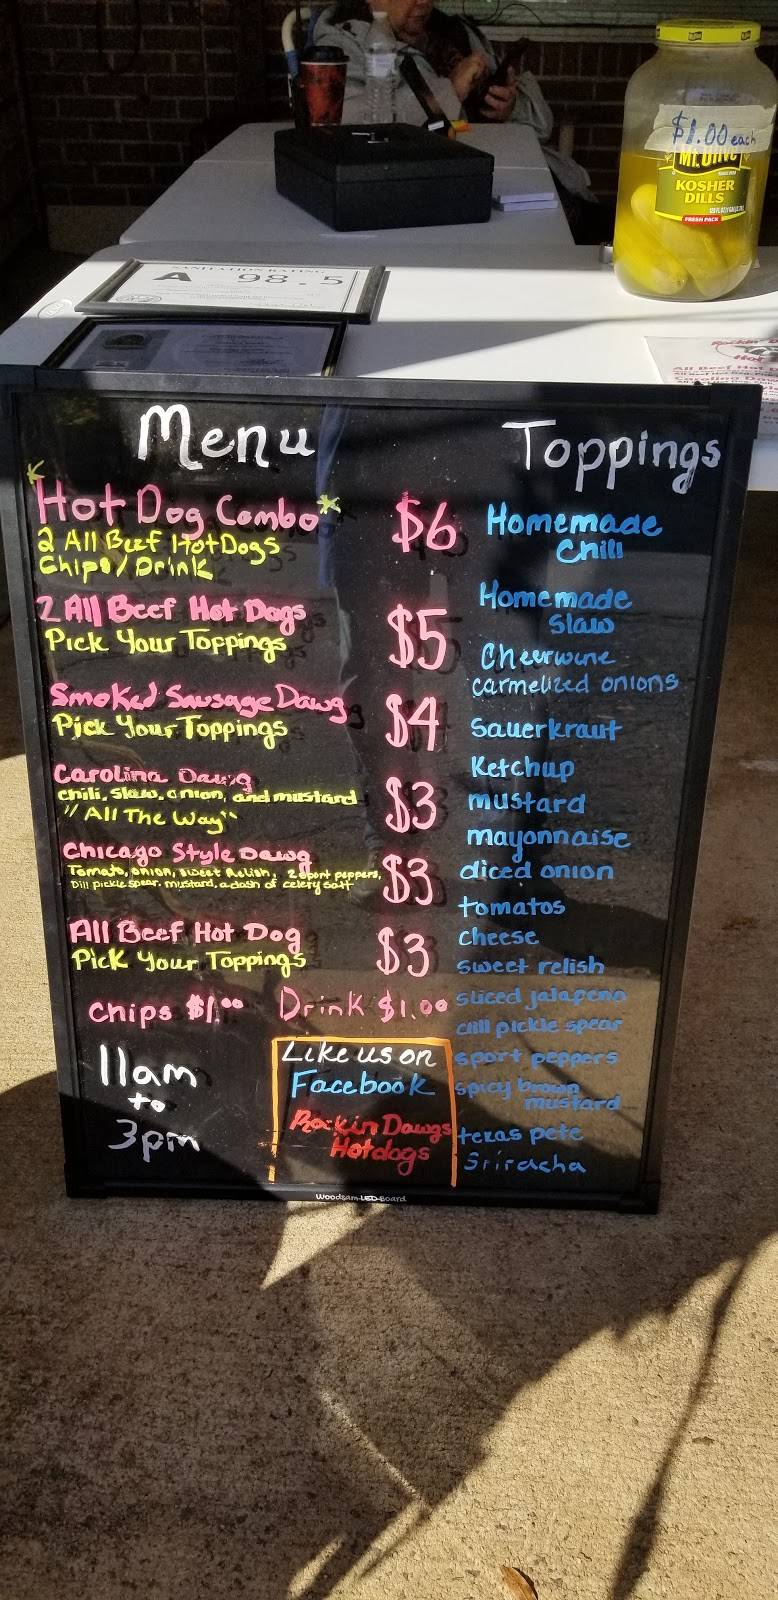 $1.00 each
MT. OLIVE
KOSHER
DILLS
FRESH PACK
SANITATION RATING
A 98.5
Menu
*Hot Dog Combo*
2 All Beef Hot Dogs
Chips/Drink
$6
2 All Beef Hot Dogs
Pick Your Toppings
$5
Smoked Sausage Dawg
Pick Your Toppings
$4
Carolina Dawg
chili, slaw, onion, and mustard
"All The Way"
$3
Chicago Style Dawg
Tomato, onion, sweet relish, 2 sport peppers,
Dill pickle spear, mustard, a dash of celery salt
$3
All Beef Hot Dog
Pick Your Toppings
$3
Chips $1.00 Drink $1.00
11am
to
3pm
Like us on
Facebook
Rockin Dawgs
Hotdogs
Toppings
Homemade
Chili
Homemade
slaw
Cheerwine
carmelized onions
Sauerkraut
Ketchup
mustard
mayonnaise
diced onion
tomatos
cheese
sweet relish
sliced jalapeno
dill pickle spear
sport peppers
spicy brown
mustard
texas pete
Sriracha
Woodsam-LED-Board